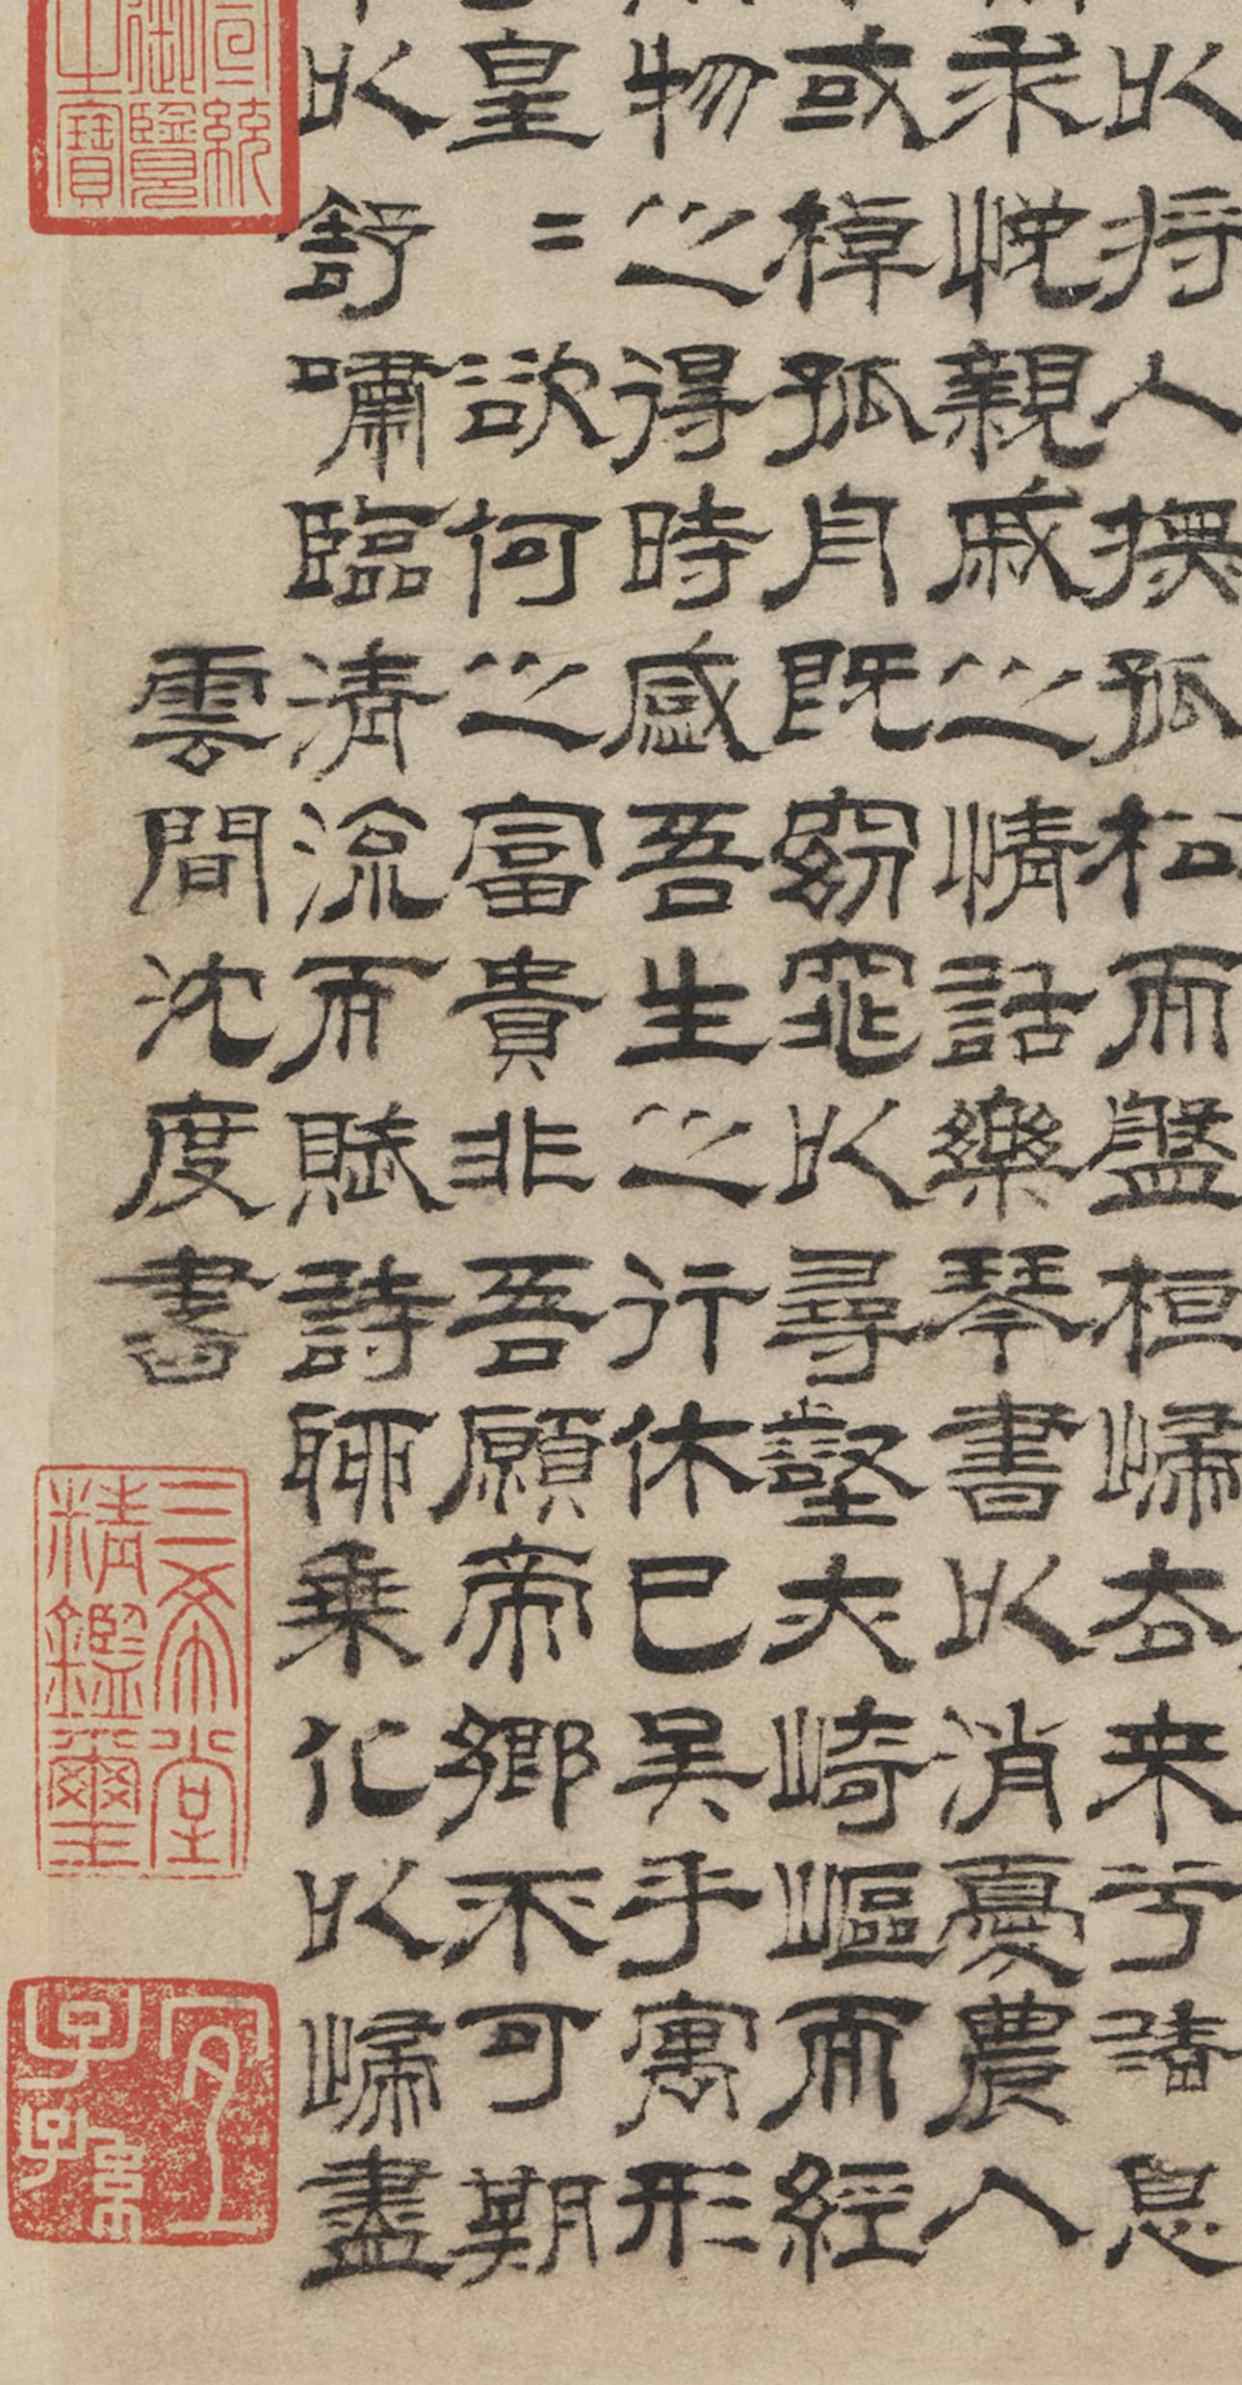 以将人撫孤松而盤桓歸去来兮請息
求悦親戚之情話樂琴書以消憂農人
或棹孤舟既窈窕以尋壑亦崎嶇而經
物之得時感吾生之行休已矣乎寓形
皇〻欲何之富貴非吾願帝鄉不可期
以舒嘯臨清流而賦詩聊乗化以歸盡
雲間沈度書
宣統御覽之寶
三希堂精鑑璽
宜子孫